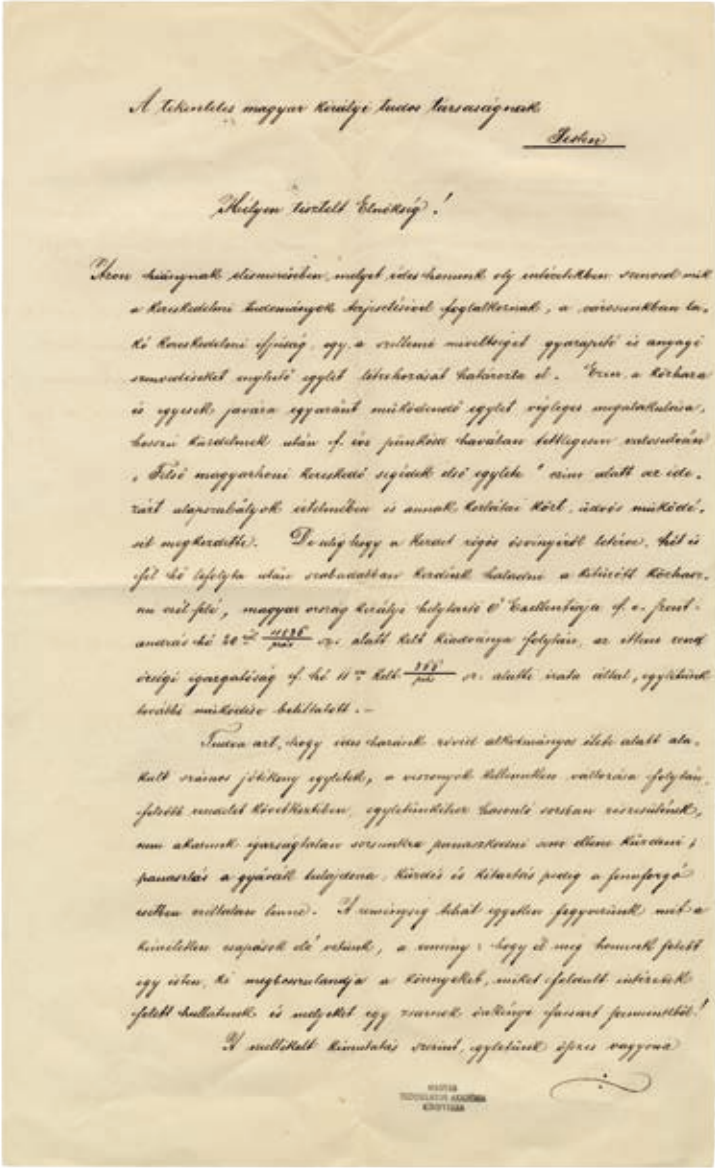 A tekintetes magyar királyi tudos társaságnak
Pesten
Mélyen tisztelt Elnökség!
Azon hiánynak elismerésében, melyet édes honunk oly intézetekben szenved mik
a kereskedelmi tudományok terjesztésével foglalkoznak, a városunkban la-
kó kereskedelmi ifjúság, egy a szellemi miveltséget gyarapító és anyagi
szenvedéseket enyhítő egylet létrehozását határozta el. Ezen, a közhaza
és egyesek javára egyaránt működendő egylet végleges megalakulása,
hosszú küzdelmek után f. év pünkösd havában tettlegesen valosulván
„Felső magyarhoni kereskedő segédek első egylete" czim alatt az ide-
zárt alapszabályok értelmében és annak korlátai közt, üdvös működé-
sét megkezdette. De alig hogy a kezdet rögös ösvényéről letérve, hét és
fél hó lefolyta után szabadabban kezdénk haladni a kitűzött közhasz-
nu czél felé, magyar ország királyi helytartó Ő Excellentiája f. é. szent-
andrás hó 20 sz. alatt kelt kiadványa folytán, az itteni rend
őrségi igazgatóság f. hó 11 kelt sz. alatti irata által, egyletünk
további működése betiltatott. –
Tudva azt, hogy édes hazánk rövid alkotmányos élete alatt ala-
kult számos jótékony egyletek, a viszonyok kellemetlen változása folytán,
felsőbb rendelet következtében, egyletünkéhez hasonló sorsban részesülének,
nem akarunk igazságtalan sorsunkra panaszkodni sem ellene küzdeni;
panaszlás a gyávák tulajdona, küzdés és kitartás pedig a fennforgó
esetben czéltalan lenne. A reménység tehát egyetlen fegyverünk mit a
kiméletlen csapások elé vetünk, a remény: hogy él még honunk felett
egy isten, ki megboszulandja a könnyeket, miket feldult intézetek
felett hullatunk és melyeket egy zsarnok önkénye facsart szemeinkből!
A mellékelt kimutatás szerint, egyletünk összes vagyona
MAGYAR
TUDOMÁNYOS AKADÉMIA
KÖNYVTÁRA